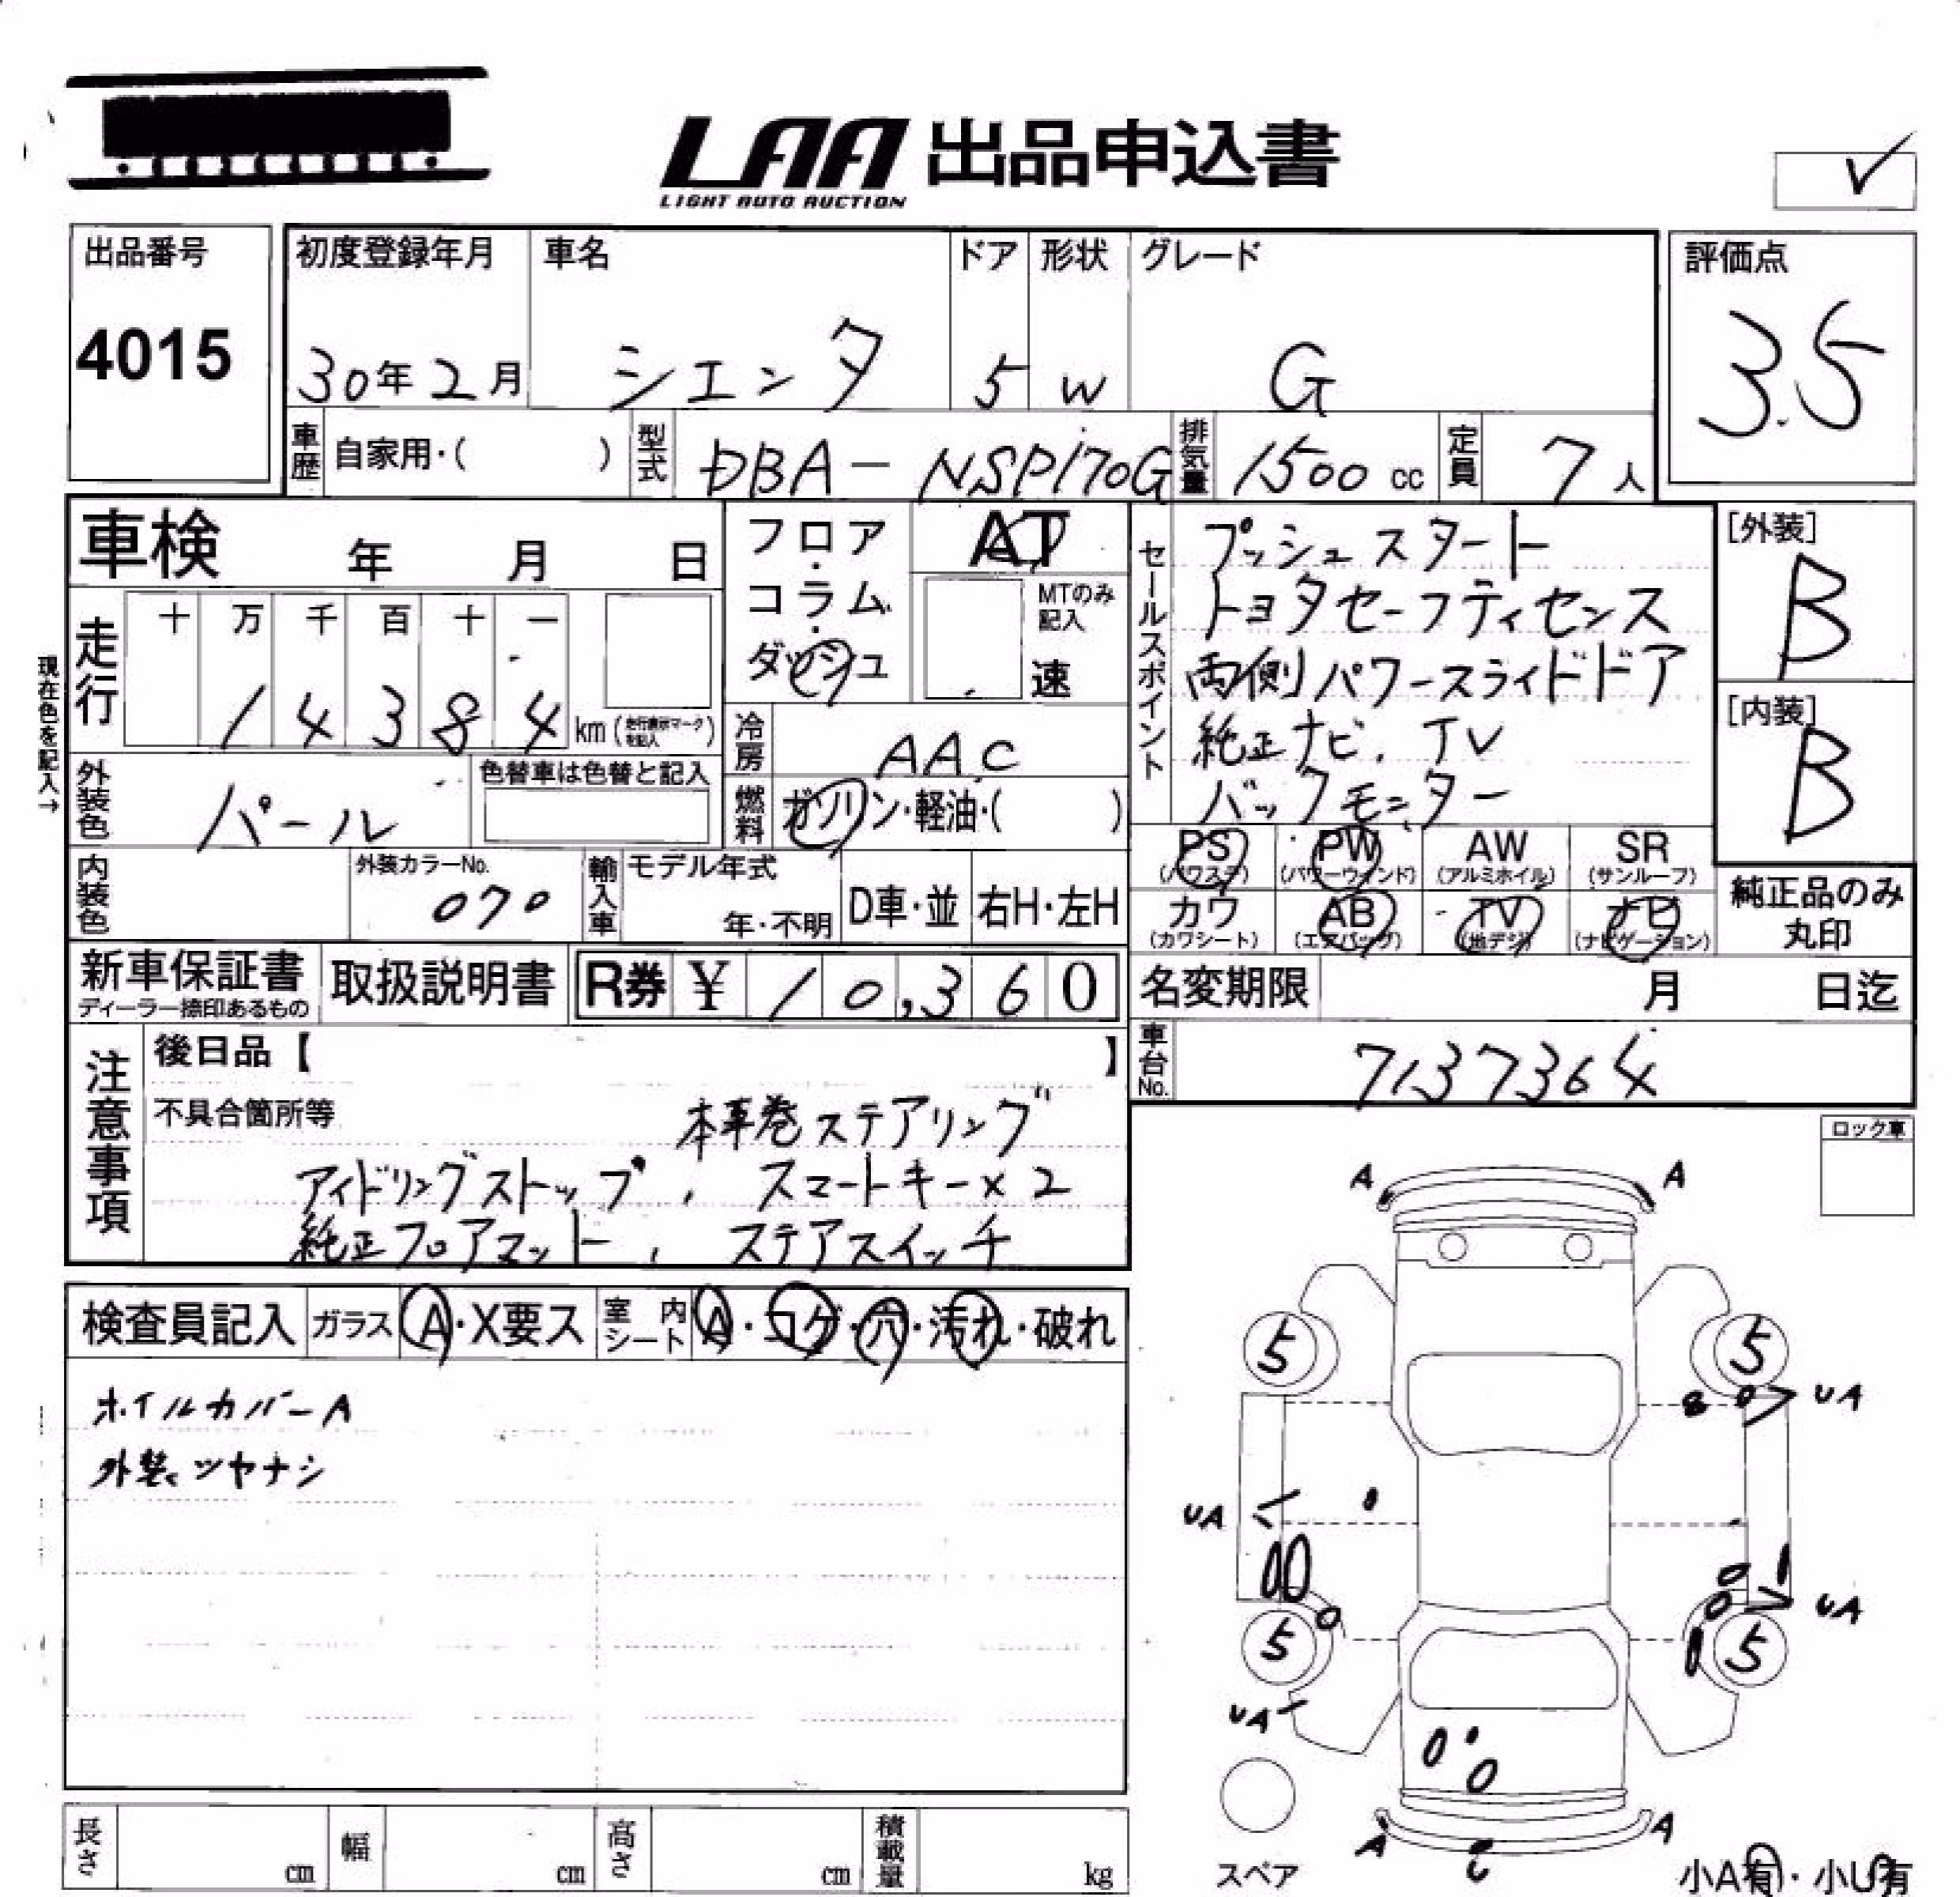 LAA 出品申込書
LIGHT AUTO AUCTION
出品番号
4015
初度登録年月
30年2月
車名
シエンタ
ドア
5
形状
W
グレード
G
評価点
3.5
車歴
自家用・( )
型式
DBA-NSP170G
排気量
1500 cc
定員
7人
車検 年 月 日
フロア・コラム・ダッシュ
AT
MTのみ記入
速
セールスポイント
プッシュスタート
トヨタセーフティセンス
両側パワースライドドア
純正ナビ、TV
バックモニター
[外装]
B
[内装]
B
現在色を記入→
走行
十 万 千 百 十 一
1 4 3 8 4 km (走行表示マークを記入)
冷房
AAC
外装色
パール
色替車は色替と記入
燃料
ガソリン・軽油・( )
PS (パワステ)
PW (パワーウィンド)
AW (アルミホイル)
SR (サンルーフ)
カワ (カワシート)
AB (エアバッグ)
TV (地デジ)
ナビ (ナビゲーション)
純正品のみ丸印
内装色
外装カラーNo.
070
輸入車
モデル年式
年・不明
D車・並
右H・左H
新車保証書
ディーラー捺印あるもの
取扱説明書
R券 ¥ 10,360
名変期限 月 日迄
車台No.
7137364
注意事項
後日品【 】
不具合箇所等
本革巻ステアリング
アイドリングストップ、スマートキー×2
純正フロアマット、ステアスイッチ
ロック車
検査員記入 ガラス A・X要ス 室内シート A・コゲ・穴・汚れ・破れ
ホイルカバーA
外装ツヤナシ
A A
5 5
UA
UA
UA
5 5
UA
A A
スペア
小A有・小U有
長さ cm
幅 cm
高さ cm
積載量 kg